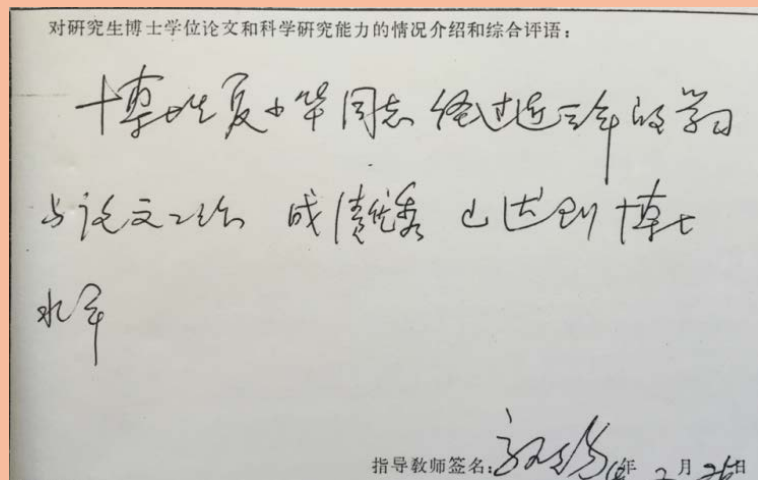 对研究生博士学位论文和科学研究能力的情况介绍和综合评语：
博士生夏小华同志经过近三年的学习
与论文工作 成绩优秀 已达到博士
水平
指导教师签名： 年 2 月 25 日